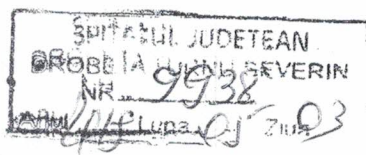 SPITALUL JUDETEAN
DROBETA TURNU SEVERIN
NR. 9938
Anul Luna 05 Ziua 03